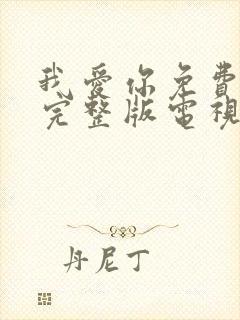 我愛你免費
完整版電視
丹尼丁